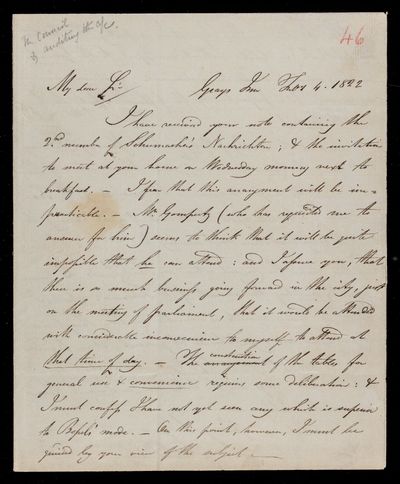 The Council
& auditing the a/c.
46
My dear Sir
Grays Inn Feby 4. 1822
I have received your note containing the
2nd number of Schumacher's Nachrichten; & the invitation
to meet at your house on Wednesday morning next to
breakfast. — I fear that this arrangement will be im=
practicable. — Mr Gompertz (who has requested me to
answer for him) seems to think that it will be quite
impossible that he can attend: and I assure you, that
there is so much business going forward in the city, just
on the meeting of parliament, that it would be attended
with considerable inconvenience to myself to attend at
that time of day. — The construction of the tables for
general use & convenience requires some deliberation: &
I must confess I have not yet seen any which is superior
to Bessel's mode. — On this point, however, I must be
guided by your view of the subject. —